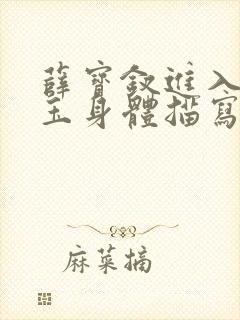 薛寶釵進入
玉身體描寫
麻菜摘